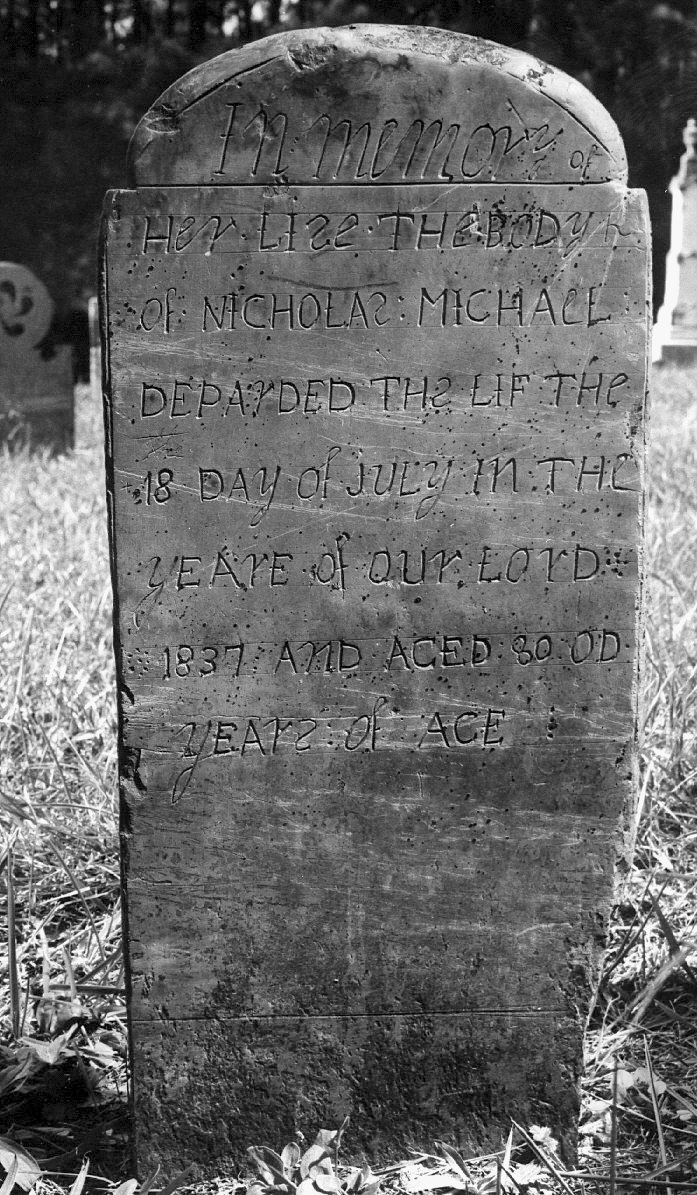 In memory of
Her LISe THe BODy
of NICHOLAS : MICHAEL
DEPArDED THS LIF THe
18 DAy of JULy IN THe
yEArE of OUr LOrD
1837 AND AGED 80 OD
yEArS : of AGE